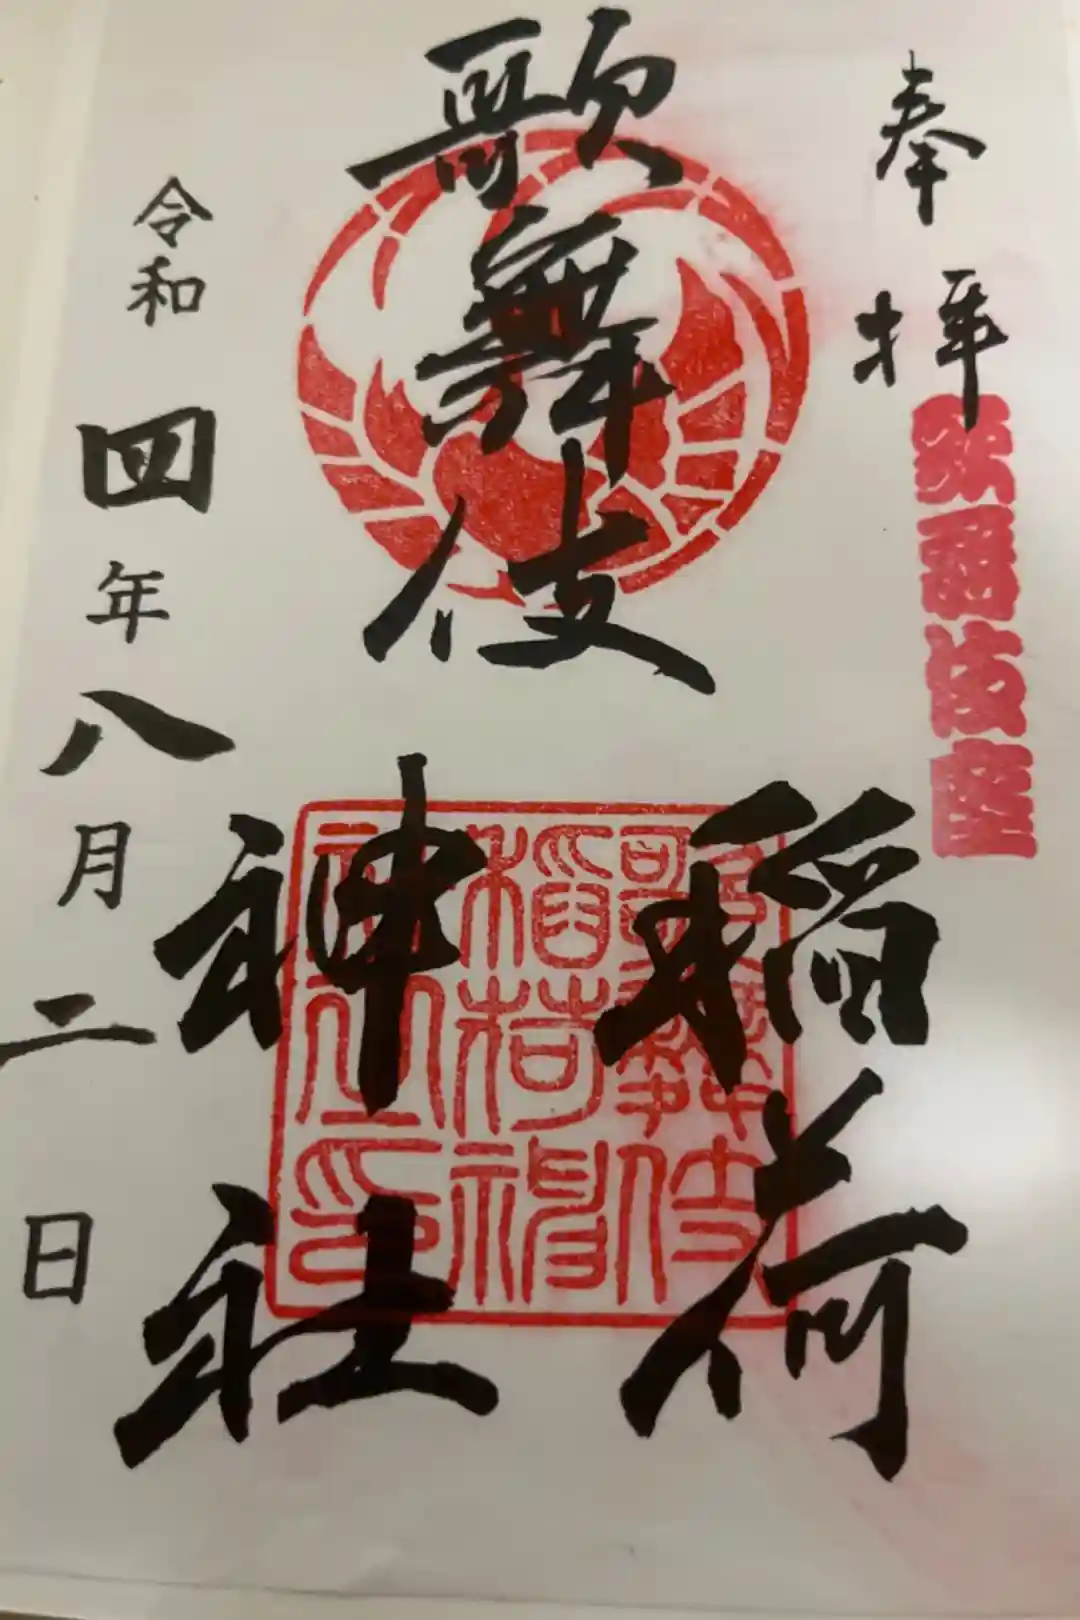 奉拝
歌舞伎座
歌舞伎
稲荷
神社
歌舞伎
稲荷神
社之印
令和四年八月二日